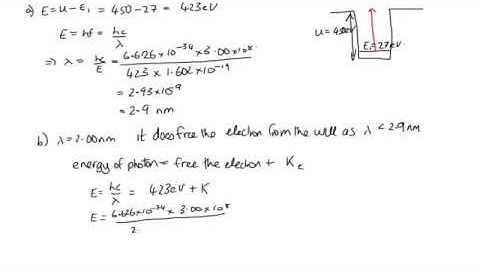 a) E = U - E₁ = 450 - 27 = 423eV
E = hf = hc/λ
⇒ λ = hc/E = 6.626 × 10⁻³⁴ × 3.00 × 10⁸ / 423 × 1.602 × 10⁻¹⁹
= 2.93 × 10⁹
= 2.9 nm
U = 450eV
E₁ = 27eV
b) λ = 2.00nm it does free the electron from the well as λ < 2.9nm
energy of photon = free the electron + Kₑ
E = hc/λ = 423eV + K
E = 6.626 × 10⁻³⁴ × 3.00 × 10⁸ / 2